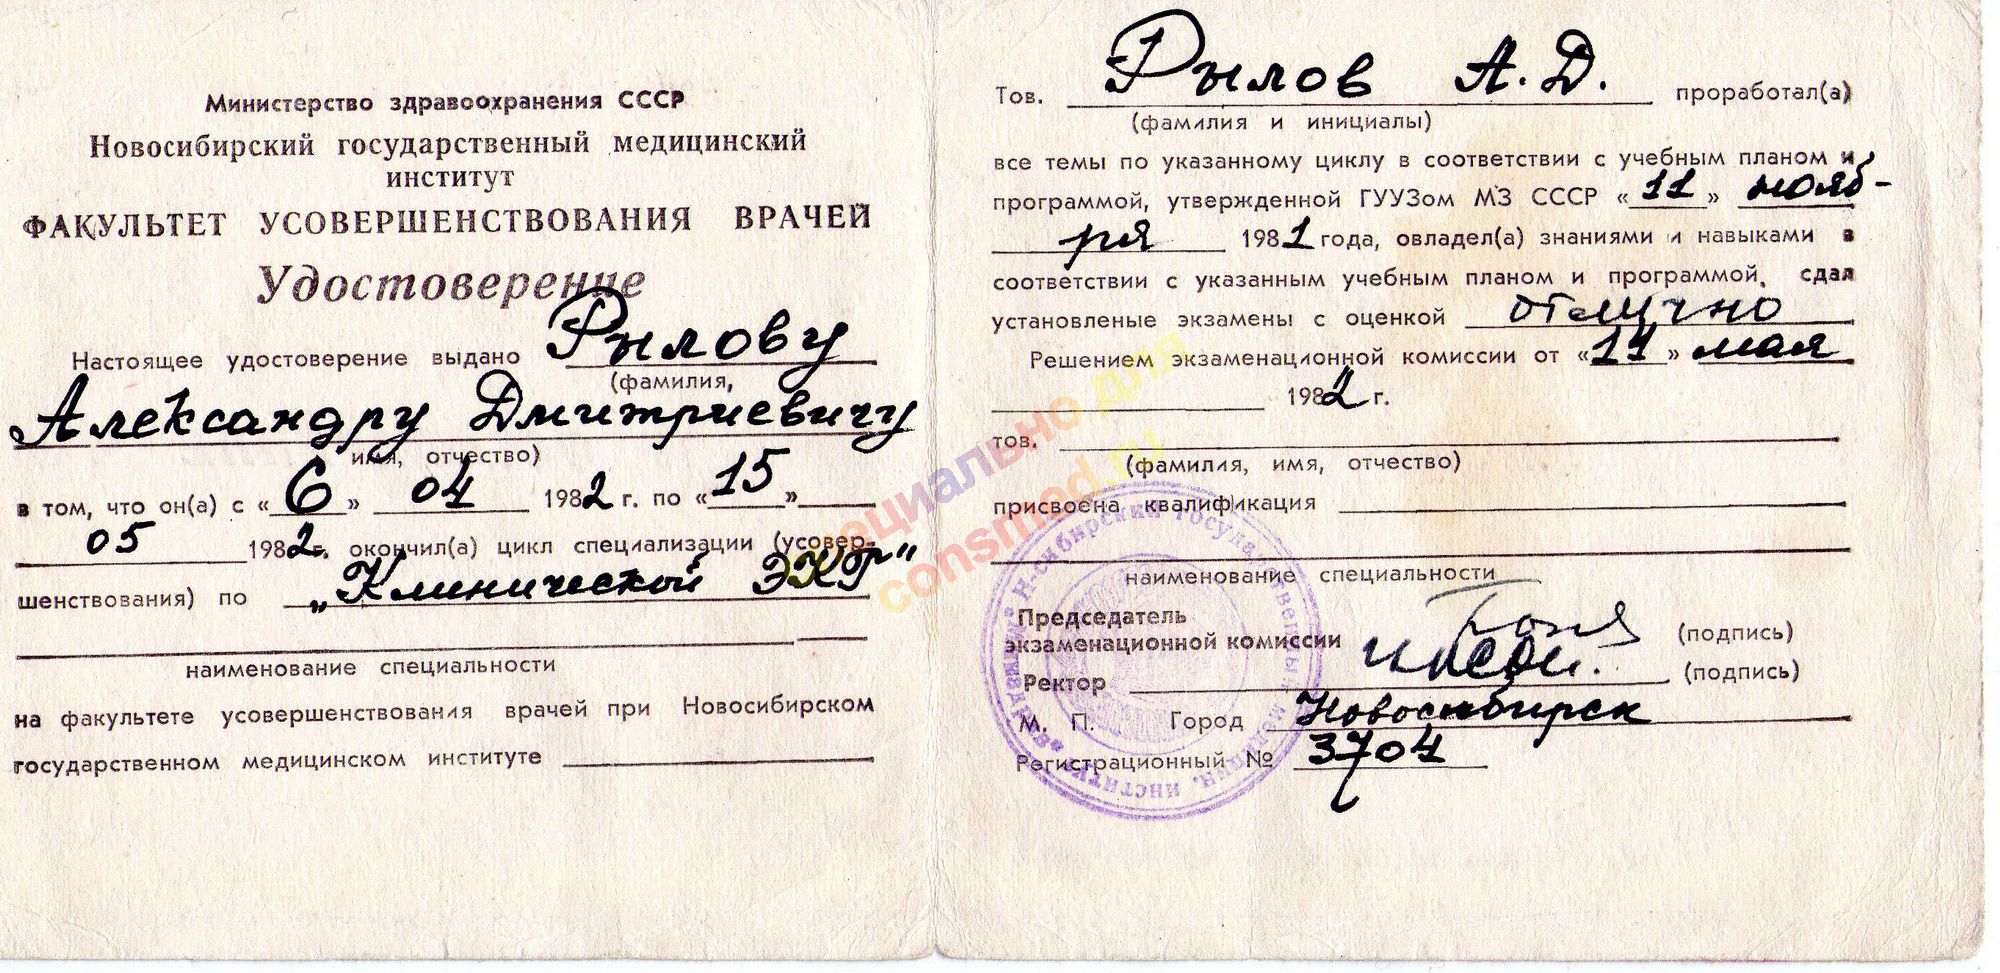 Министерство здравоохранения СССР
Новосибирский государственный медицинский
институт
ФАКУЛЬТЕТ УСОВЕРШЕНСТВОВАНИЯ ВРАЧЕЙ
Удостоверение
Настоящее удостоверение выдано Рылову
(фамилия,
Александру Дмитриевичу
имя, отчество)
в том, что он(а) с «6» 04 1982 г. по «15»
05 1982 г. окончил(а) цикл специализации (усовер-
шенствования) по „Клинической ЭКГ"
наименование специальности
на факультете усовершенствования врачей при Новосибирском
государственном медицинском институте
Тов. Рылов А. Д. проработал(а)
(фамилия и инициалы)
все темы по указанному циклу в соответствии с учебным планом и
программой, утвержденной ГУУЗом МЗ СССР «11» нояб-
ря 1981 года, овладел(а) знаниями и навыками в
соответствии с указанным учебным планом и программой, сдал
установленые экзамены с оценкой отлично
Решением экзаменационной комиссии от «14» мая
1982 г.
тов.
(фамилия, имя, отчество)
присвоена квалификация
наименование специальности
Председатель
экзаменационной комиссии (подпись)
Ректор (подпись)
М. П. Город Новосибирск
Регистрационный № 3704
Н-сибирский государственный медицин. институт
специально для
consmed.ru